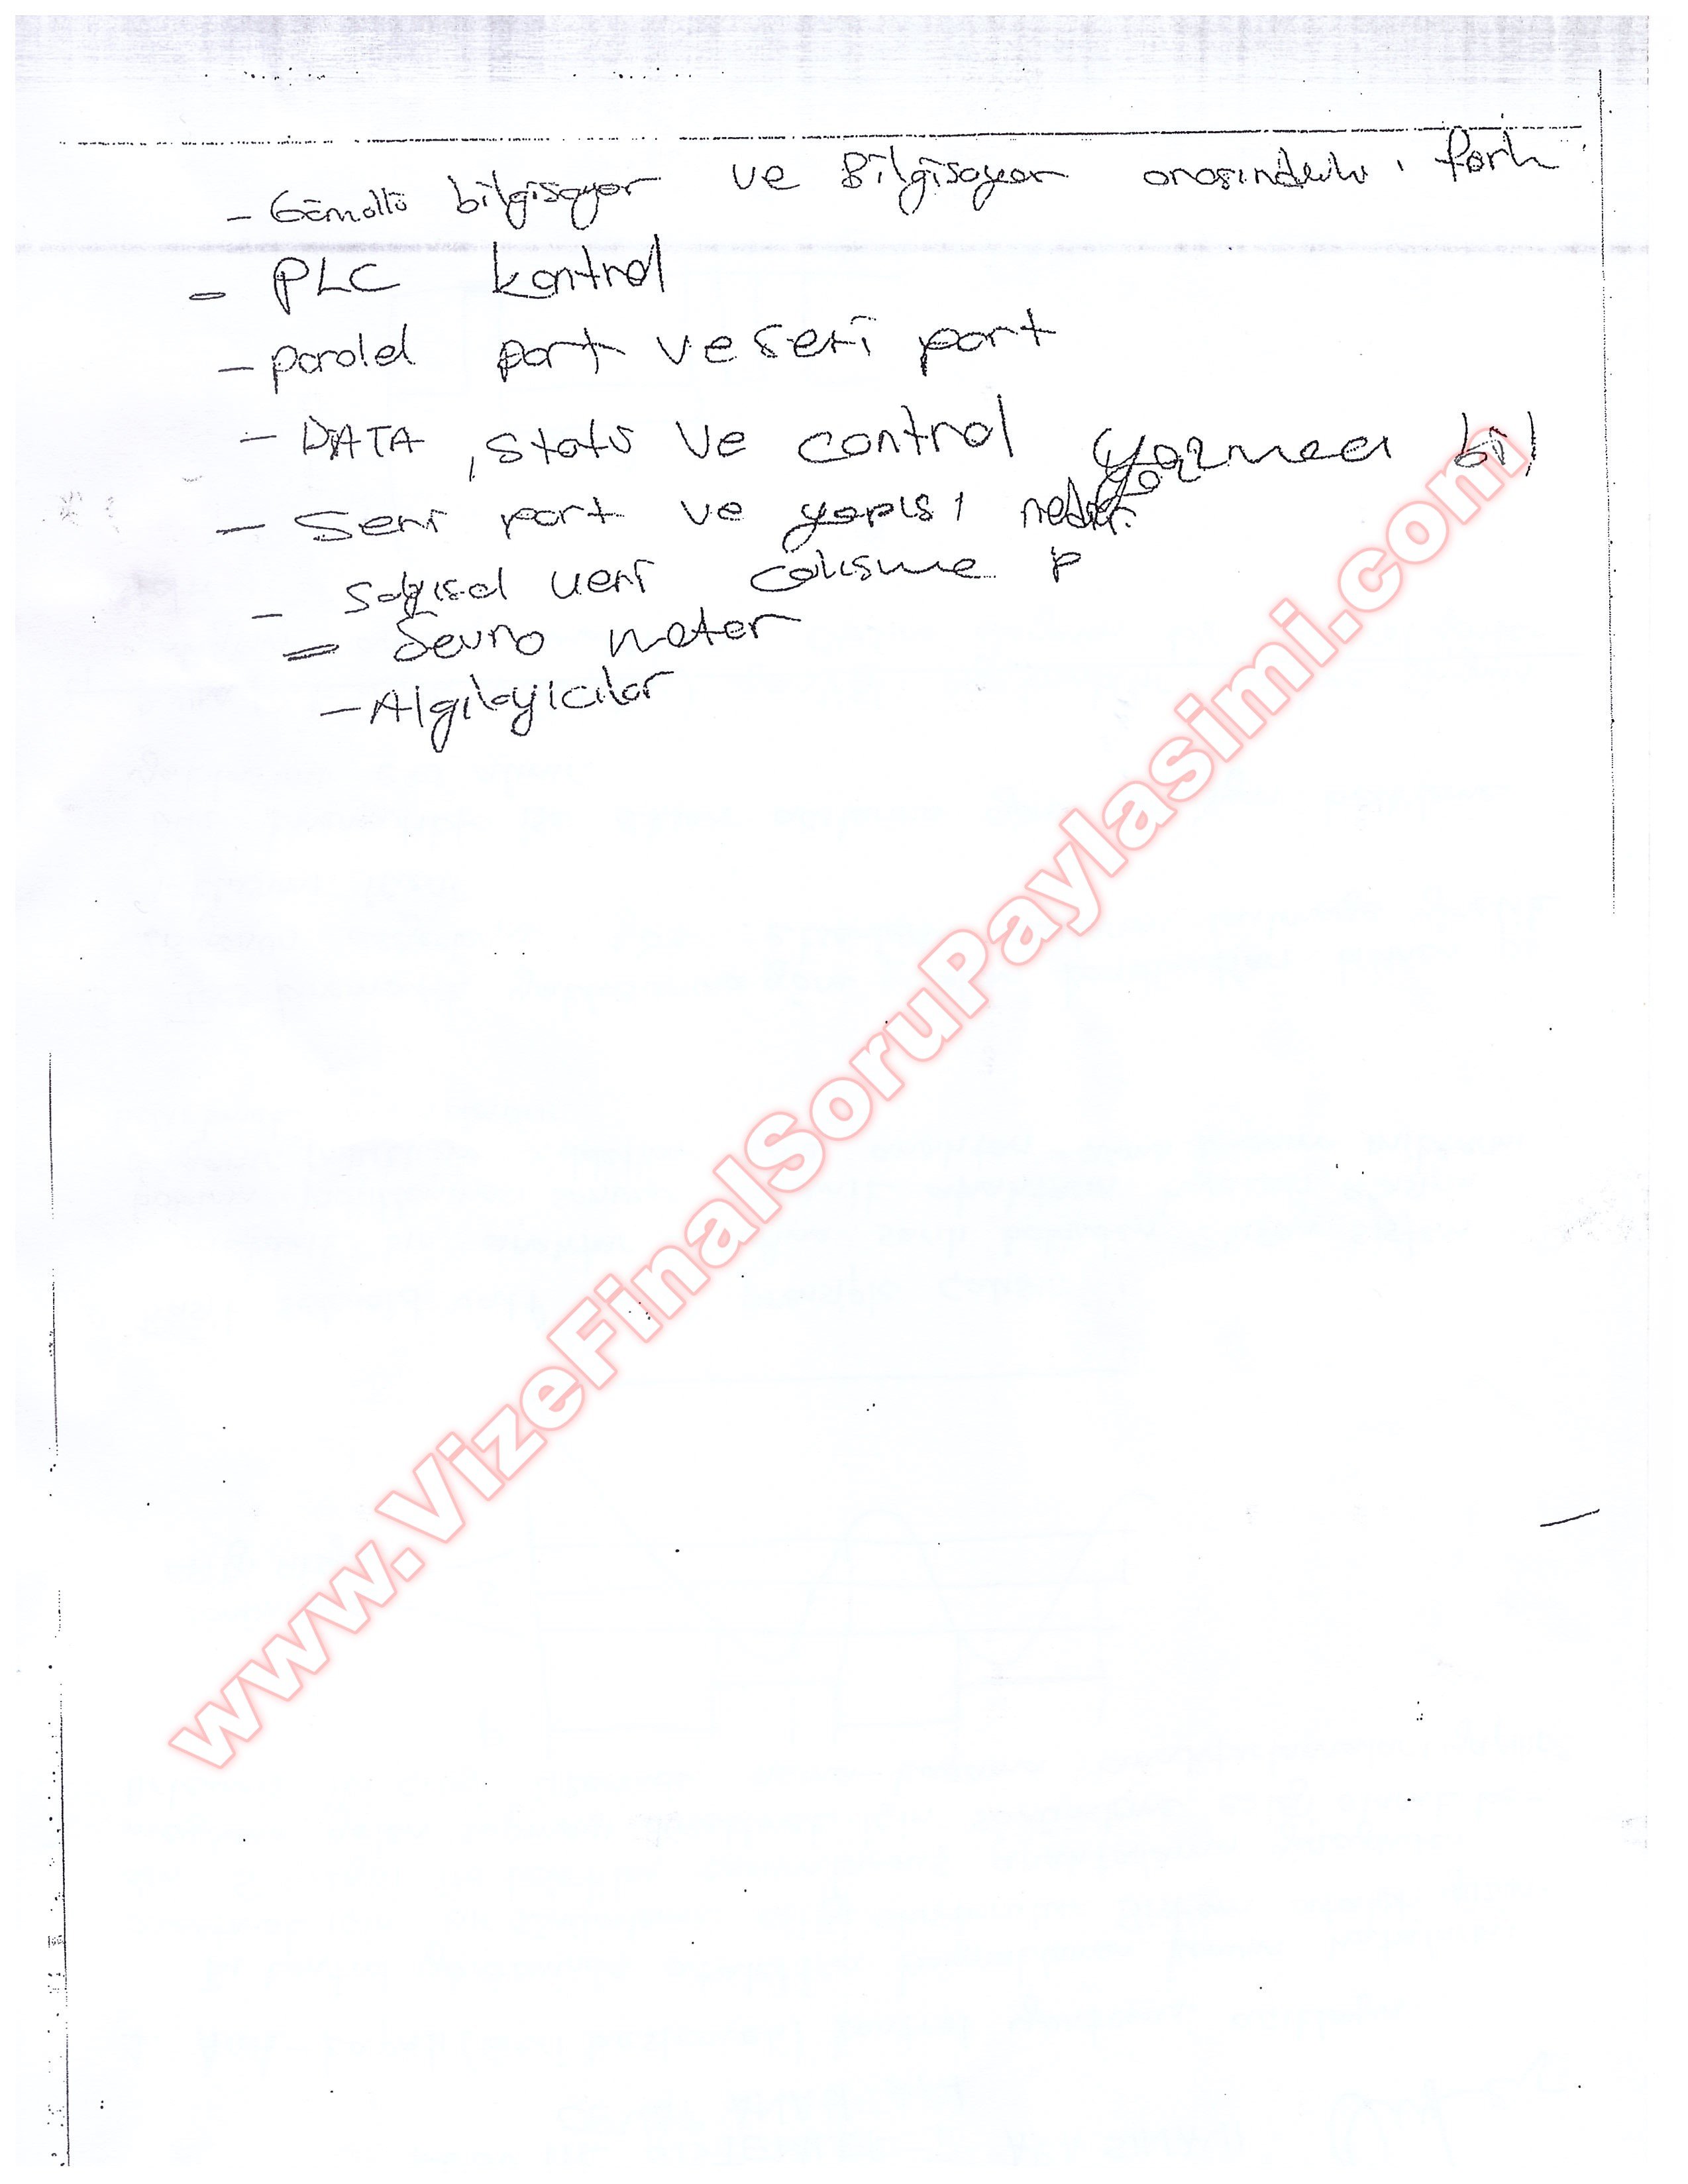 - Gömülü bilgisayar ve Bilgisayar arasındaki fark
- PLC kontrol
- paralel port ve seri port
- DATA, statü ve control yazmacı bil
- Seri port ve yapısı nedir.
- Sayısal veri calısma p
= Sevro motor
- Algılayıcılar
www.VizeFinalSoruPaylasimi.com